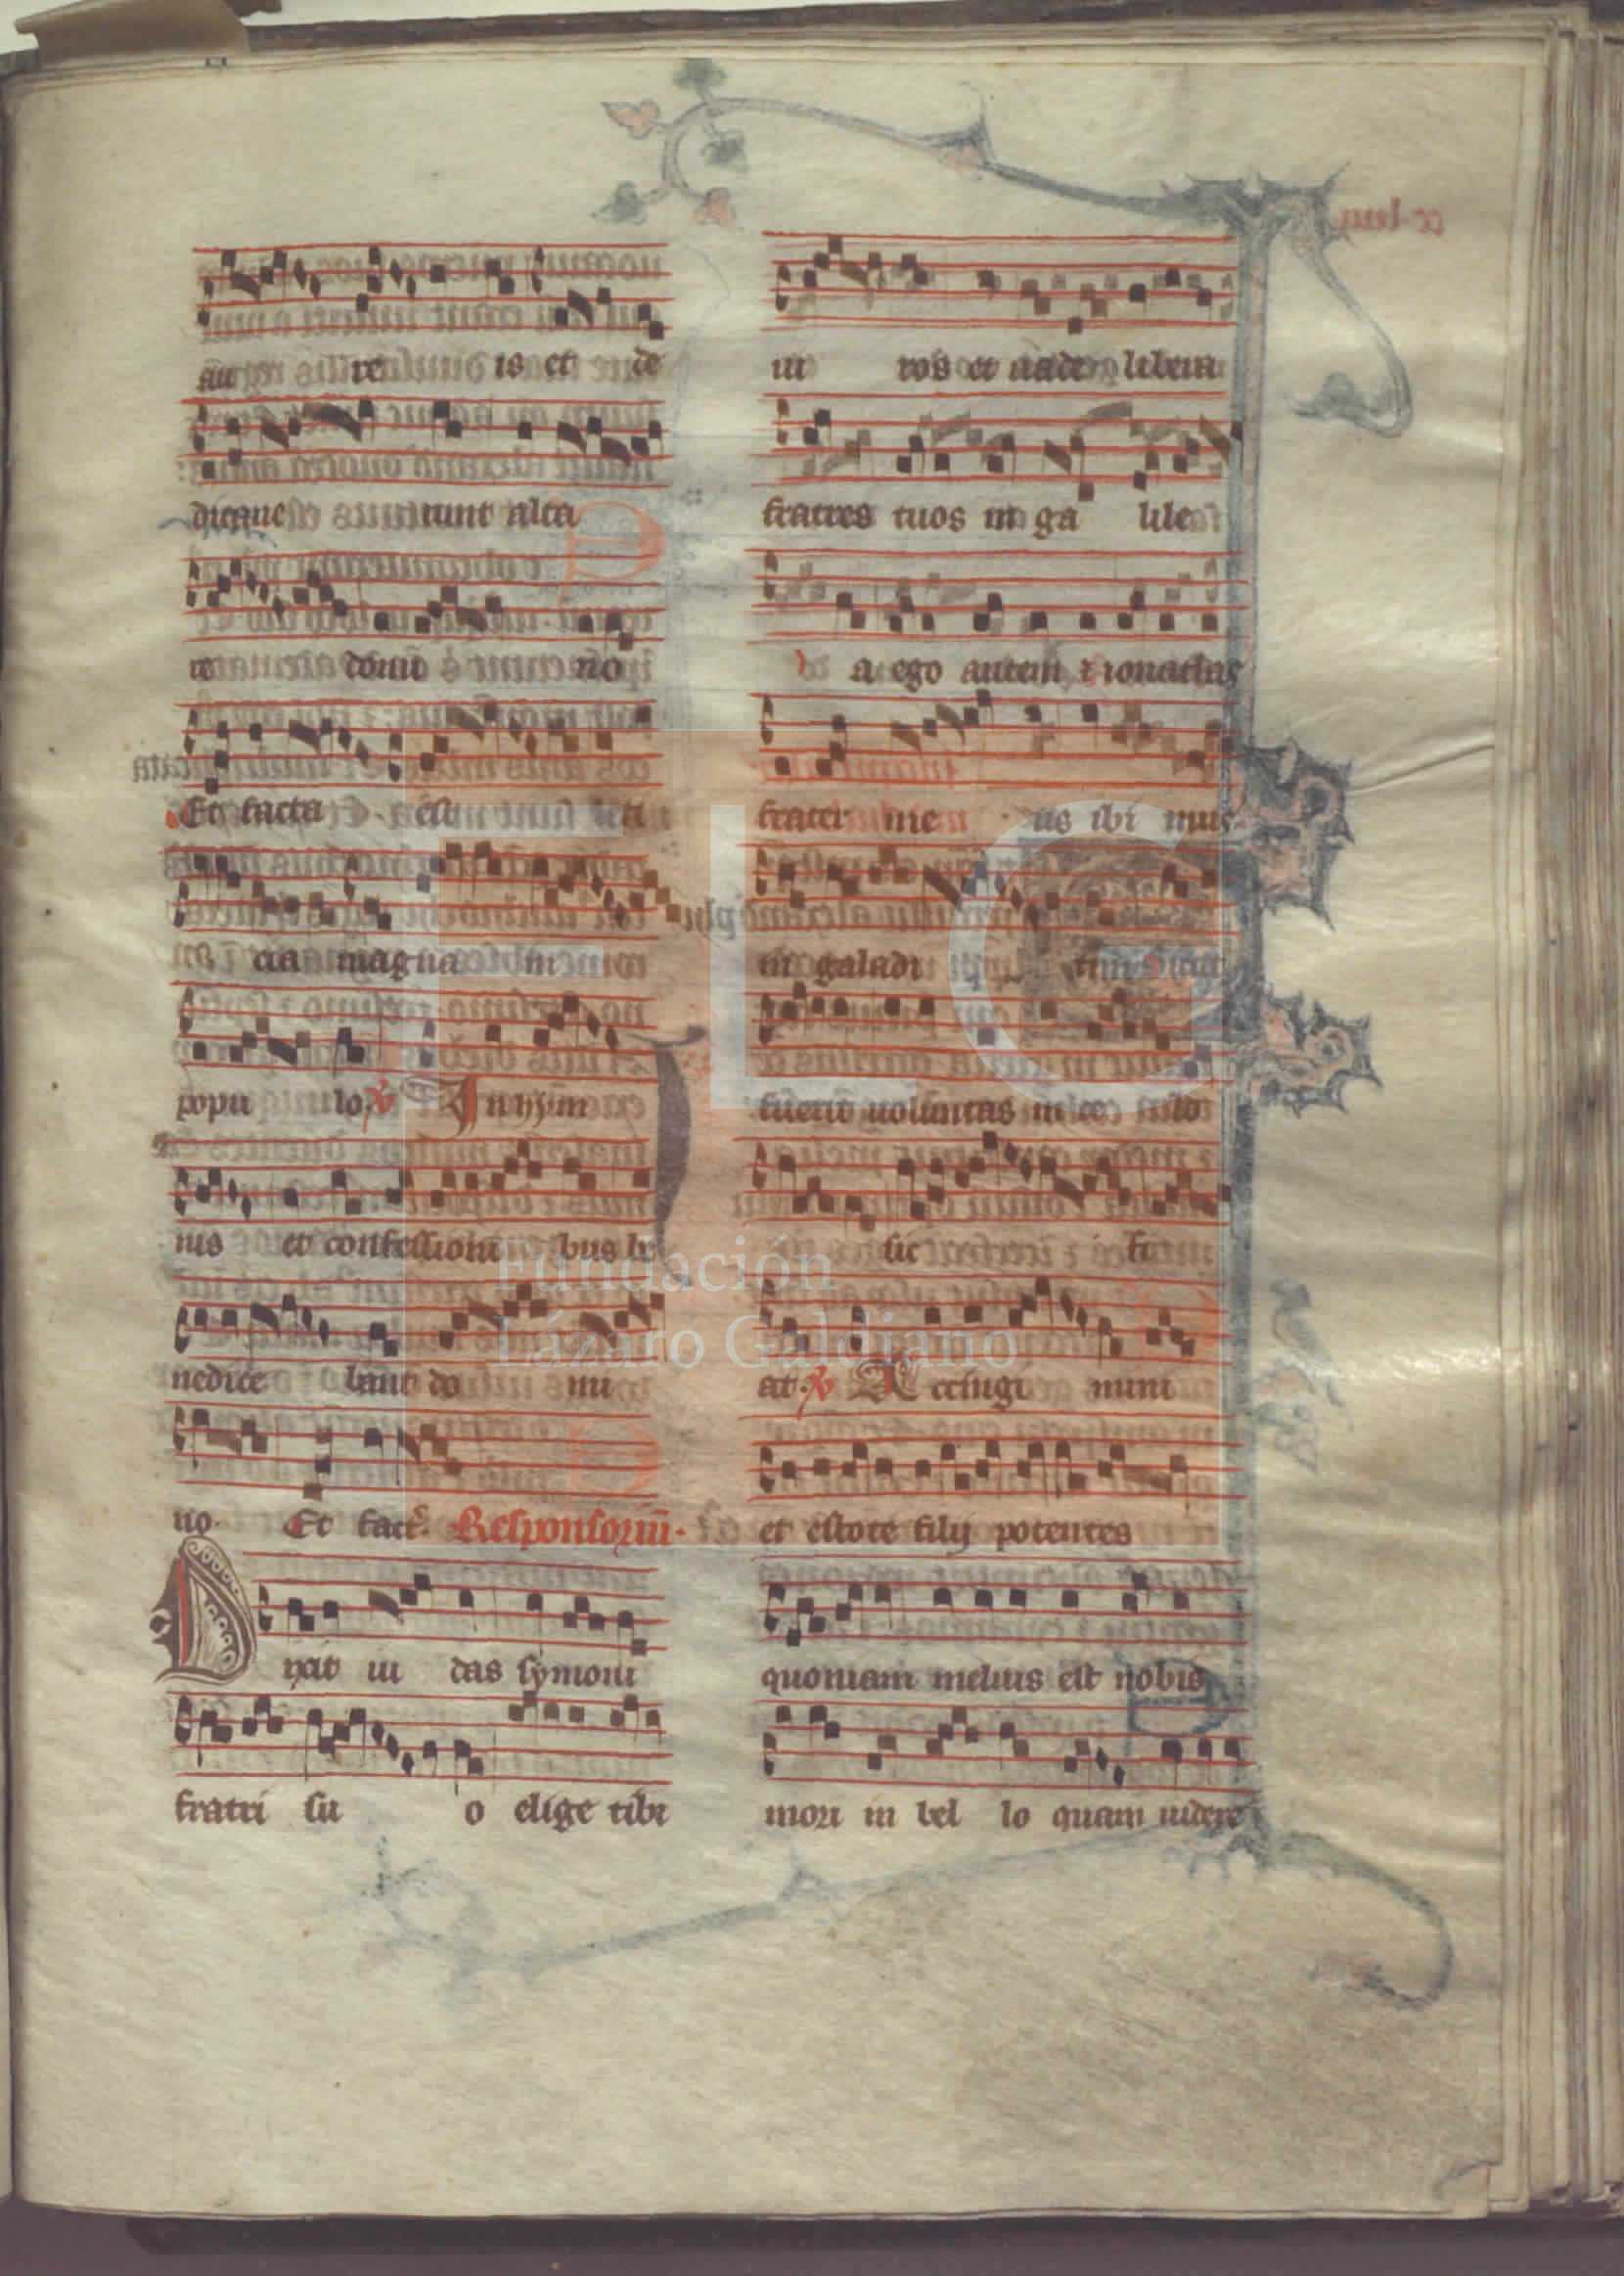 au re is et de
dicaue runt alta
re domi no
Et facta est leti
cia magna in
popu lo. ℣ In hym
nis et confessioni bus be
nedice bant do mi
no. Et fact. Responsoriũ.
D ixit iu das symoni
fratri su o elige tibi
ui ros et uade libera
fratres tuos in ga lile
a ego autem ⁊ ionathas
frater me us ibi mus
in galadi tim sicut
fuerit uoluntas in celo
sic fi
at. ℣ A ccingi mini
et estote filij potentes
quoniam melius est nobis
mori in bel lo quam uidere
FLG
Fundación
Lázaro Galdiano